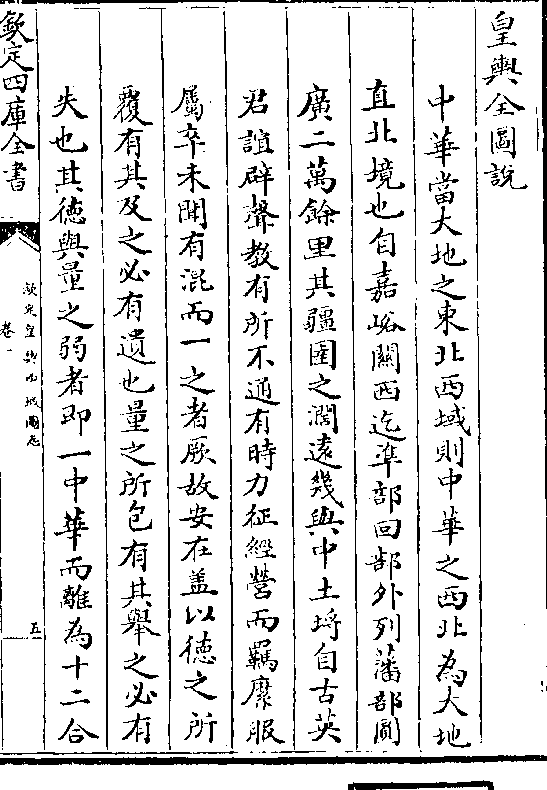 皇輿全圖說
中華當大地之東北西域則中華之西北為大地
直北境也自嘉峪關西迄準部回部外列藩部圓
廣二萬餘里其疆圉之濶遠幾與中土埒自古英
君誼辟聲教有所不通有時力征經營而羈縻服
屬卒未聞有混而一之者厥故安在盖以德之所
覆有其及之必有遺也量之所包有其舉之必有
失也其德與量之弱者即一中華而離為十二合
欽定四庫全書
欽定皇輿西域圖志
卷一
五